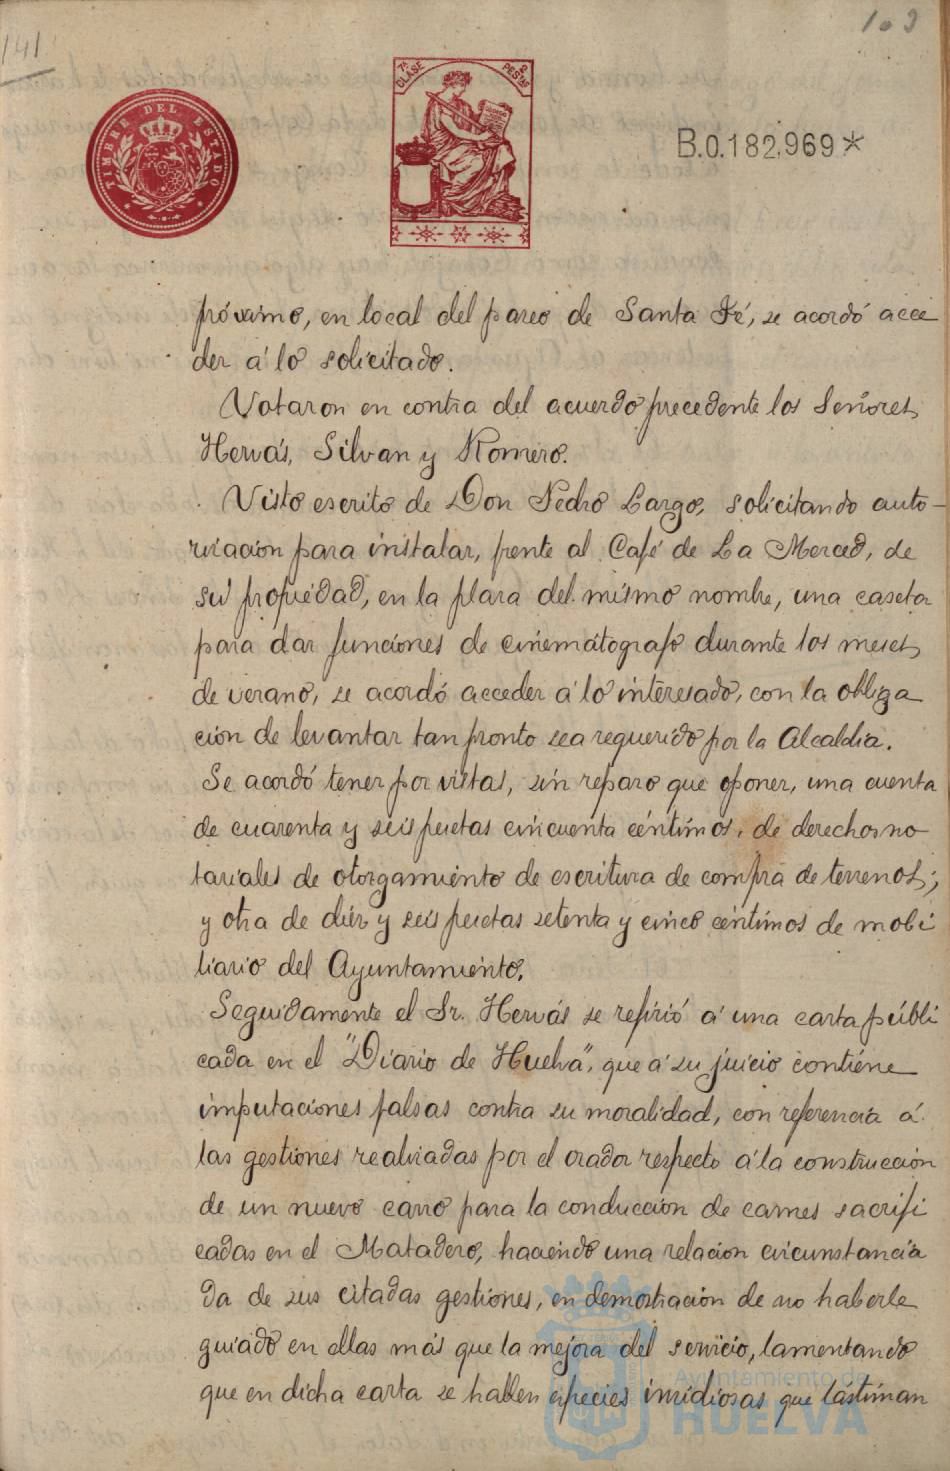 141
103
TIMBRE DEL ESTADO
7ª CLASE
2 PESTAS
B.0.182,969*
próximo, en local del paseo de Santa Fé, se acordó acce
der á lo solicitado.
Votaron en contra del acuerdo precedente los Señores
Hervás, Silvan y Romero.
Visto escrito de Don Pedro Largo, solicitando auto-
rización para instalar, frente al Café de La Merced, de
su propiedad, en la plaza del mismo nombre, una caseta
para dar funciones de cinematografo durante los meses
de verano, se acordó acceder á lo interesado, con la obliga
ción de levantar tan pronto sea requerido por la Alcaldia.
Se acordó tener por vistas, sin reparo que oponer, una cuenta
de cuarenta y seis pesetas cincuenta céntimos, de derechos no
tariales de otorgamiento de escritura de compra de terrenos;
y otra de diez y seis pesetas setenta y cinco céntimos de mobi
liario del Ayuntamiento.
Seguidamente el Sr. Hervás se refirió á una carta públi
cada en el "Diario de Huelva", que á su juicio contiene
imputaciones falsas contra su moralidad, con referencia á
las gestiones realizadas por el orador respecto á la construcción
de un nuevo carro para la conducción de carnes sacrifi
cadas en el Matadero, haciendo una relacion circunstancia
da de sus citadas gestiones, en demostración de no haberle
guiado en ellas más que la mejora del servicio, lamentando
que en dicha carta se hallen especies insidiosas que lástiman
Ayuntamiento de
HUELVA